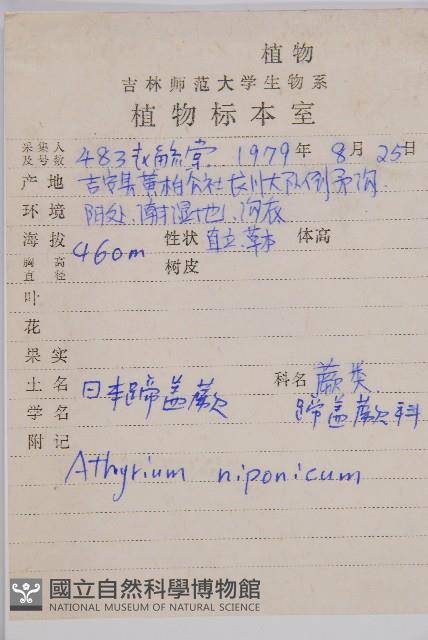 植物
吉林师范大学生物系
植物标本室
采集人及号数 483 1979年 8月 25日
产地 黄柏公社 大队
环境 阳处、 湿地、河底
海拔 460m 性状 直立、草本 体高
胸高直径 树皮
叶
花
果实
土名 日本蹄盖蕨 科名 蕨类
学名 蹄盖蕨科
附记
Athyrium niponicum
國立自然科學博物館
NATIONAL MUSEUM OF NATURAL SCIENCE